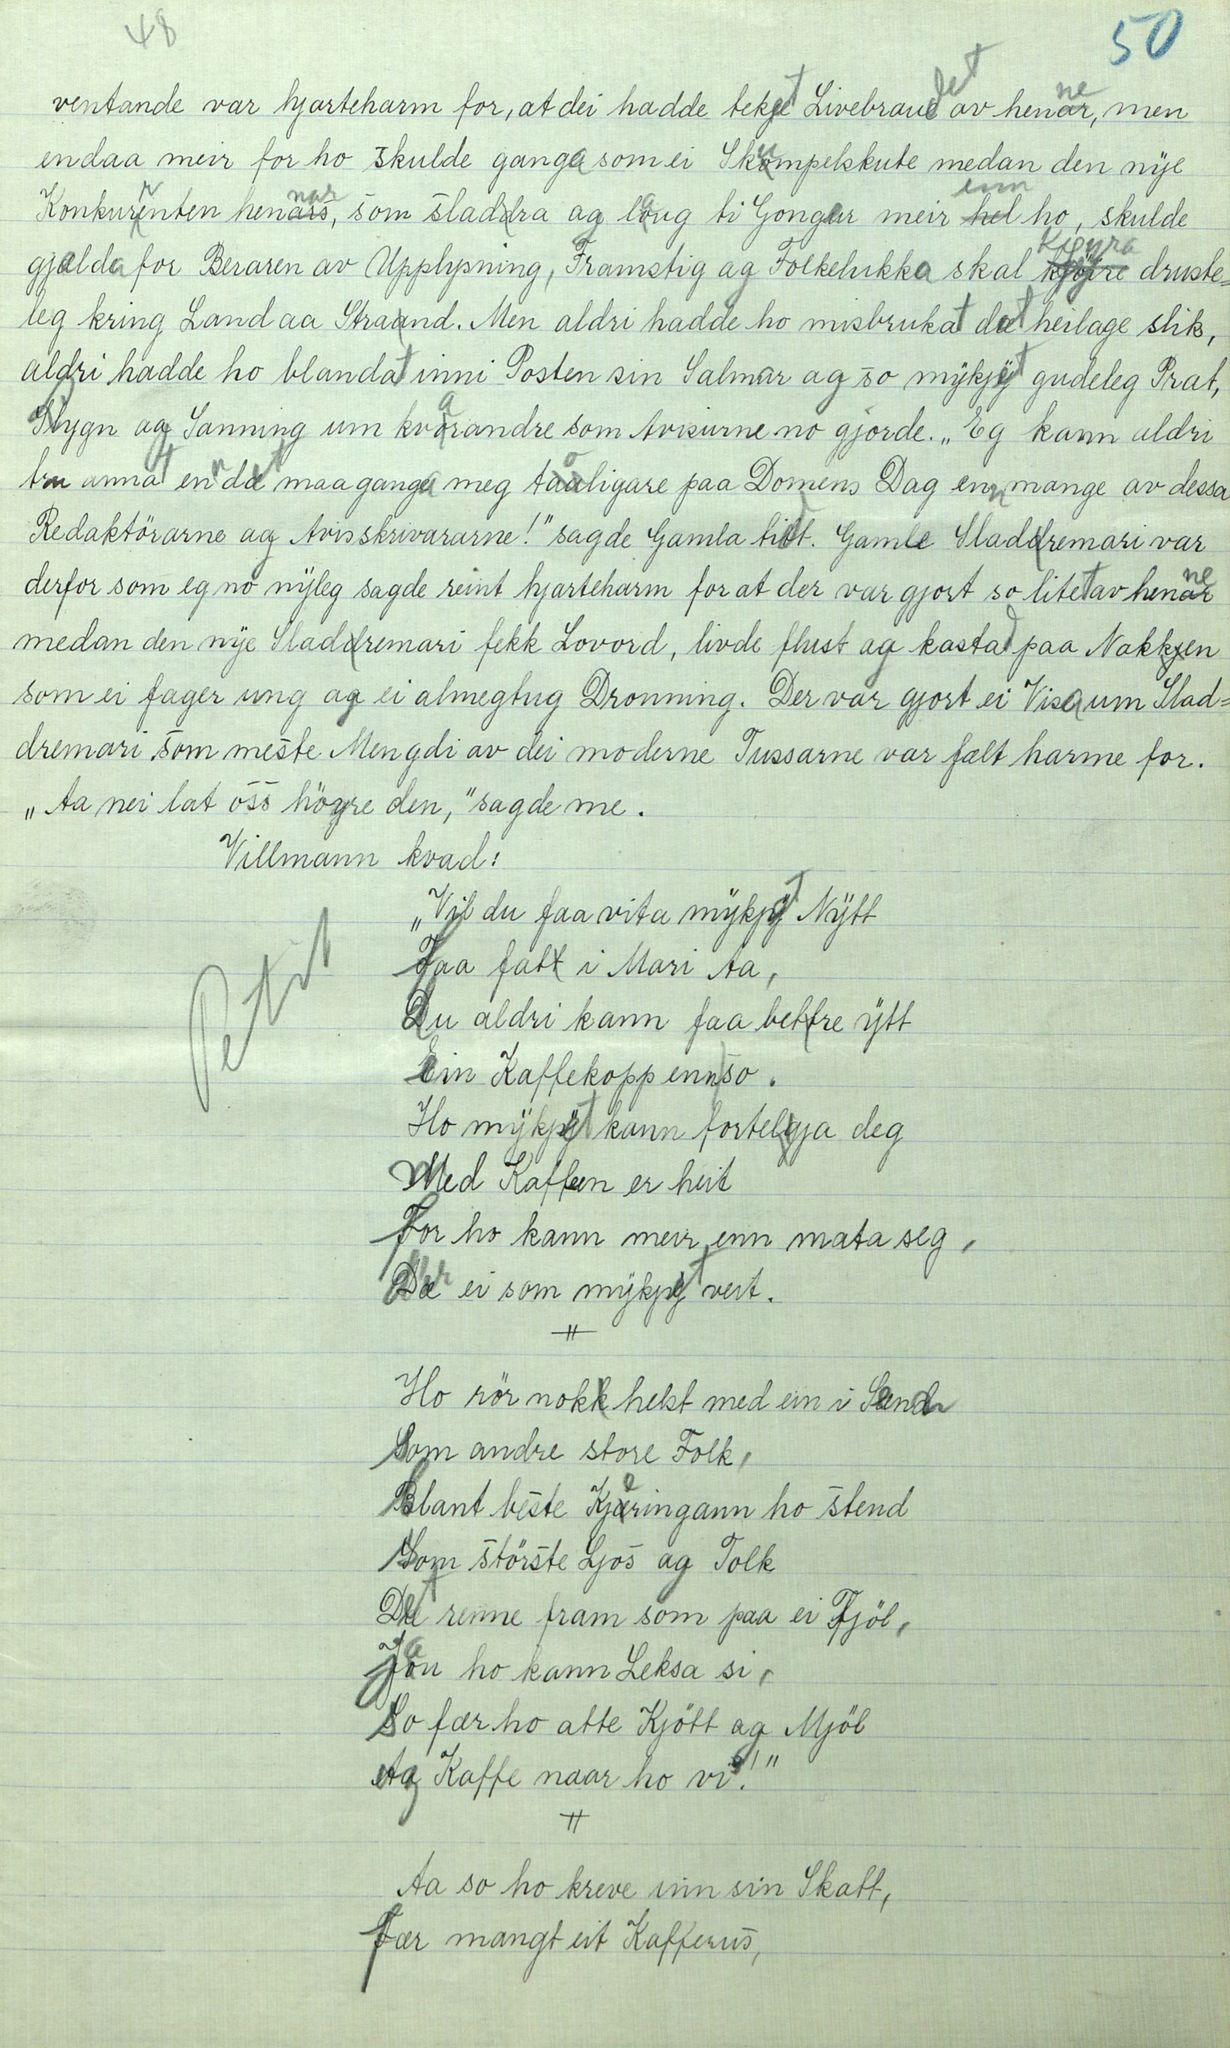 48
50
ventande var hjarteharm for, at dei hadde tekjet Livebraudet av henne, men
endaa meir for ho skulde ganga som ei Skumpelskute medan den nye
Konkurrenten hennar, som sladra ag laug ti Gongar meir enn ho, skulde
gjælda for Beraren av Upplysning, Framstig ag Folkelukka skal kjøyra druste-
leg kring Land aa Strand. Men aldri hadde ho misbrukat dat heilage slik,
aldri hadde ho blandat inni Posten sin Salmar ag so mykjet gudeleg Prat,
Lygn ag Sanning um kvarandre som Avisurne no gjorde. „Eg kann aldri
tru annat enn dæt maa ganga meg toligare paa Domens Dag enn mange av dessa
Redaktörarne ag Avisskrivararne!" sagde Gamla tidt. Gamle Sladremari var
derfor som eg no nyleg sagde reint hjarteharm for at der var gjort so litet av henne
medan den nye Sladdremari fekk Lovord, livde flust ag kastad paa Nakken
som ei fager ung ag ei almegtug Dronning. Der var gjort ei Visa um Slad-
dremari som meste Mengdi av dei moderne Tussarne var fælt harme for.
„Aa nei lat oss høyre den," sagde me.
Villmann kvad:
„Vil du faa vita mykjyt Nytt
faa fatt i Mari Aa,
Du aldri kann faa betre ytt
Ein Kaffekopp enn so.
Ho mykjyt kann fortelja deg
Med Kaffen er heit
For ho kann meir enn mata seg,
Dæ ei som mykjyt veit.
Ho rör nokk helst med ein i Send
Som andre store Folk,
Blant beste Kjeringann ho stend
Som störste Ljos ag Tolk
Dæt renne fram som paa ei Fjöl,
Ja ho kann Leksa si,
So fær ho atte Kjött ag Mjöl
Ag Kaffe naar ho vi!"
Aa so ho kreve inn sin Skatt,
Fær mangt eit Kafferus,